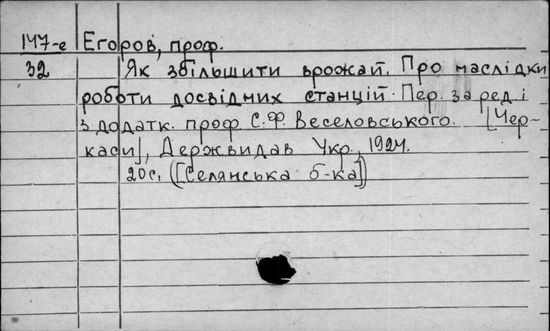 147-е Егоров, проф.
32 Як збільшити врожай. Про наслідки
роботи досвідних станцій. Пер. за ред. і
з додатк. проф. С.Ф. Веселовського. [Чер-
каси], Держвидав Укр., 1924.
20с. ([Селянська б-ка])